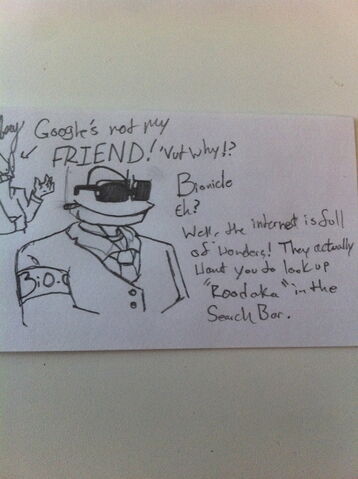 Google's not my
FRIEND! Vut why!?
Bionicle
Eh?
Well, the internet is full
of wonders! They actually
Want you to look up
"Roodaka" in the
Search Bar.
B.i.O.